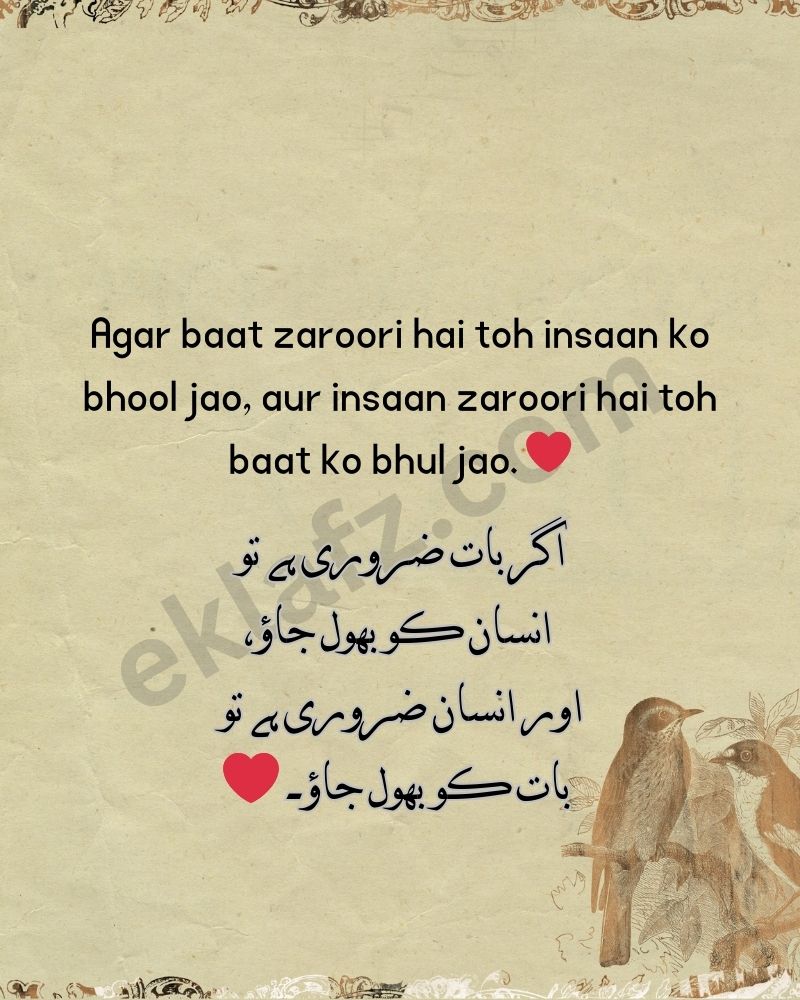 Agar baat zaroori hai toh insaan ko
bhool jao, aur insaan zaroori hai toh
baat ko bhul jao.❤️
اگر بات ضروری ہے تو
انسان کو بھول جاؤ،
اور انسان ضروری ہے تو
بات کو بھول جاؤ۔ ❤️
eklafz.com